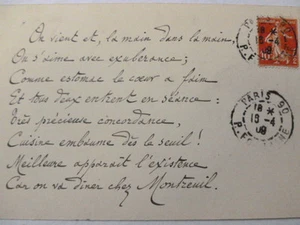 On vient et, la main dans la main,
On s'aime avec exubérance ;
Comme estomac le cœur a faim
Et tous deux entrent en séance :
Très précieuse concordance,
Cuisine embaume dès le seuil !
Meilleure apparaît l'existence
Car on va dîner chez Montreuil.
PARIS 90
18 *
19-4
09